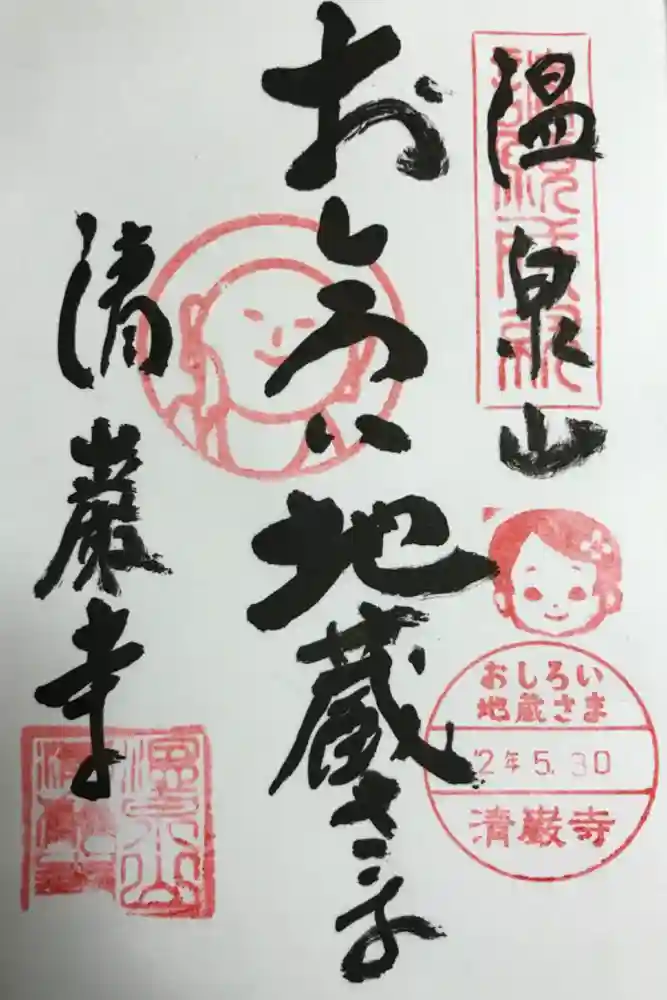 温泉山
おしろい地蔵さま
清巌寺
おしろい
地蔵さま
2年5.30
清巌寺
温泉山